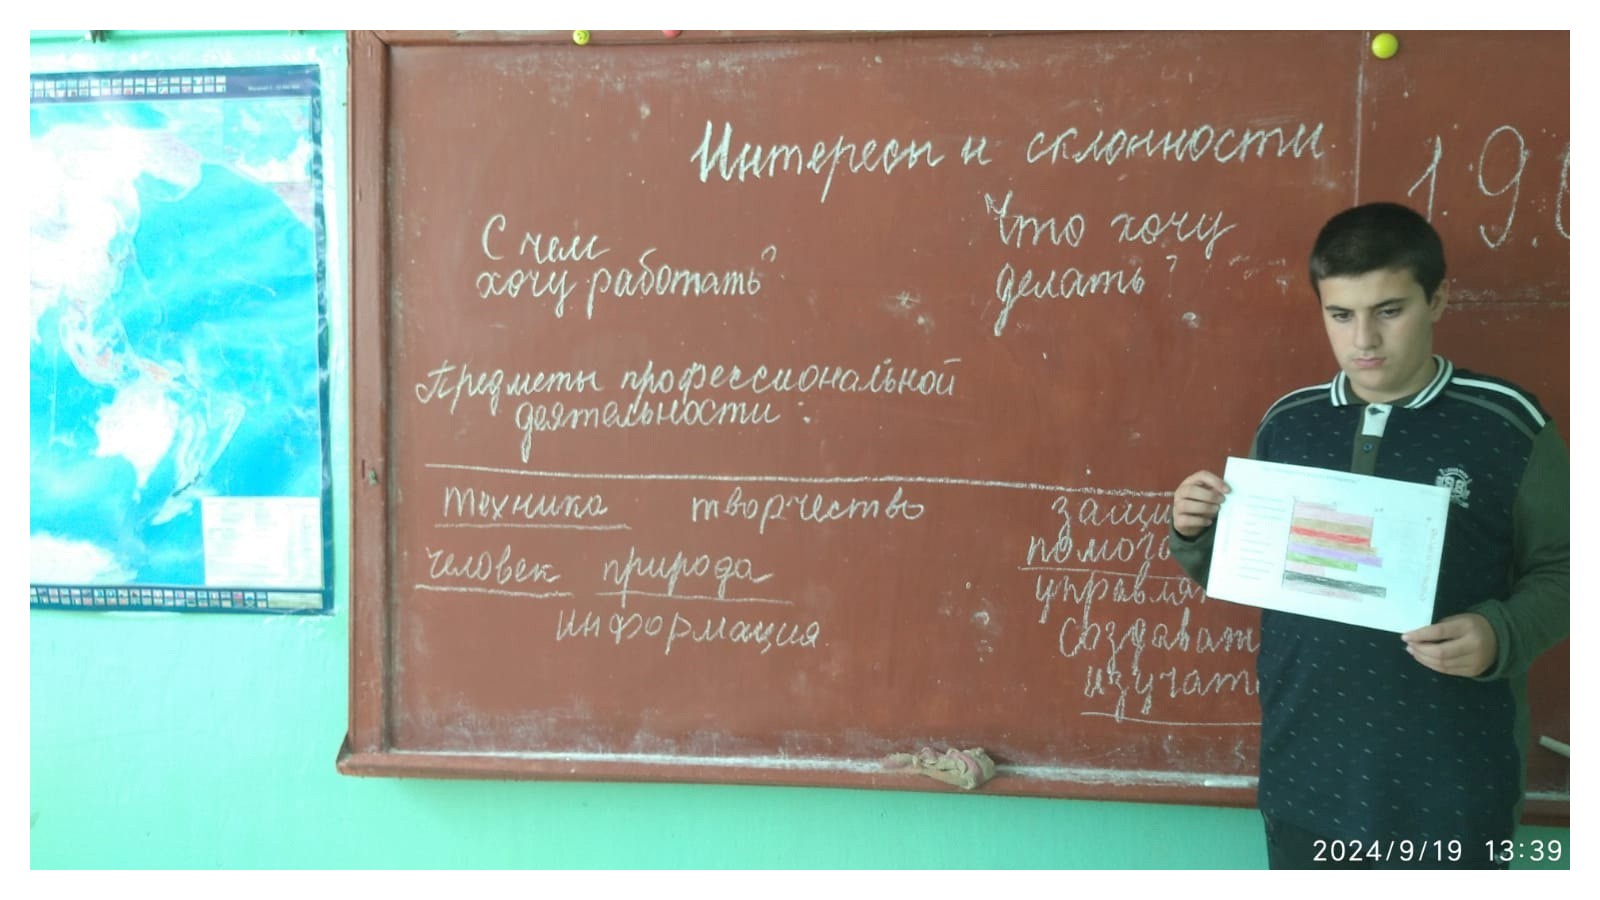 Интересы и склонности
19.0
С чем
хочу работать?
Что хочу
делать?
Предметы профессиональной
деятельности:
техника творчество
человек природа
информация
защи
помочь
управля
создават
изучат
2024/9/19 13:39